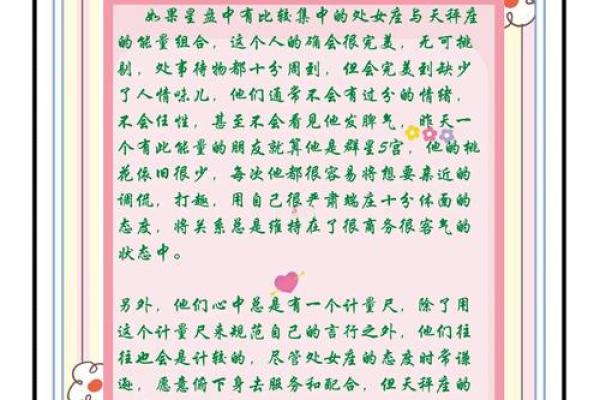 如果星盘中有比较集中的处女座与天秤座
的能量组合，这个人的确会很完美，无可挑
剔，处事待物都十分周到，但会完美到缺少
了人情味儿，他们通常不会有过分的情绪，
不会任性，甚至不会看见他发脾气，昨天一
个有此能量的朋友就算他是群星5宫，他的桃
花依旧很少，每次他都很容易将想要亲近的
调侃，打趣，用自己很严肃端庄十分体面的
态度，将关系总是维持在了很商务很客气的
状态中。
另外，他们心中总是有一个计量尺，除了用
这个计量尺来规范自己的言行之外，他们往
往也会是计较的，尽管处女座的态度时常谦
逊，愿意俯下身去服务和配合，但天秤座的